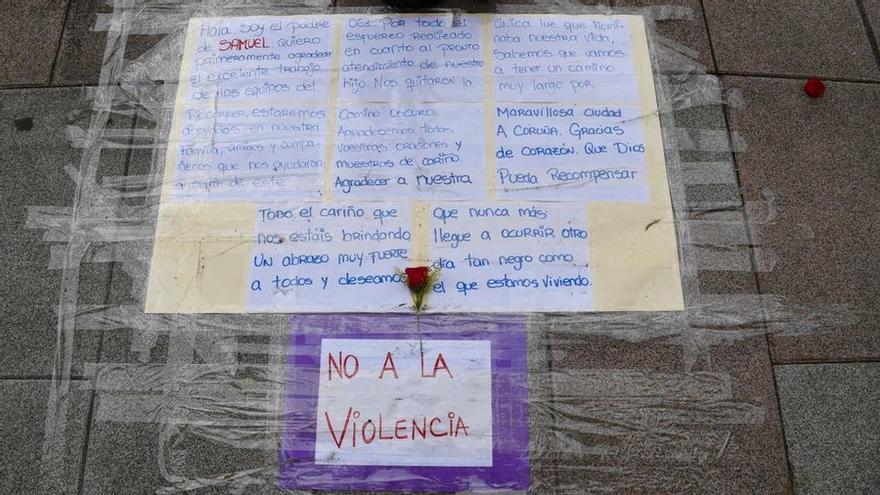 Hola, Soy el padre
de SAMUEL. QUIERO
primeramente agradecer
el excelente trabajo
de los equipos del
061. Por todo el
esfuerzo realizado
en cuanto al pronto
atendimiento de nuestro
hijo. Nos quitaron la
Única luz que ilumi
naba nuestra vida,
Sabemos que vamos
a tener un camino
muy largo por
Recorrer, estaremos
apoyados en nuestra
Familia, amigos y compa
ñeros que nos ayudaran
a salir de este
Camino oscuro.
Agradecemos todas
vuestras oraciones y
muestras de cariño
Agradecer a nuestra
Maravillosa ciudad
A Coruña. Gracias
de corazón. Que Dios
Pueda Recompensar
Todo el cariño que
nos estáis brindando
Un abrazo muy fuerte
a todos y deseamos
Que nunca más
llegue a ocurrir otro
día tan negro como
el que estamos viviendo.
NO A LA
VIOLENCIA